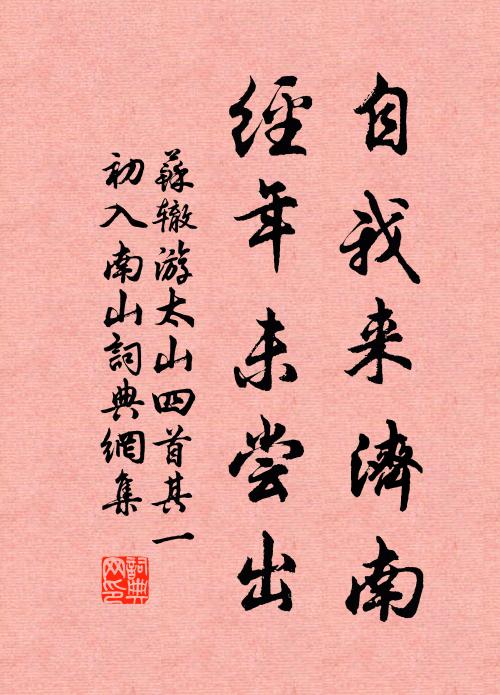 自我来濟南
經年未尝出
蘇辙游太山四首其一
初入南山詞典網集
詞典
网印